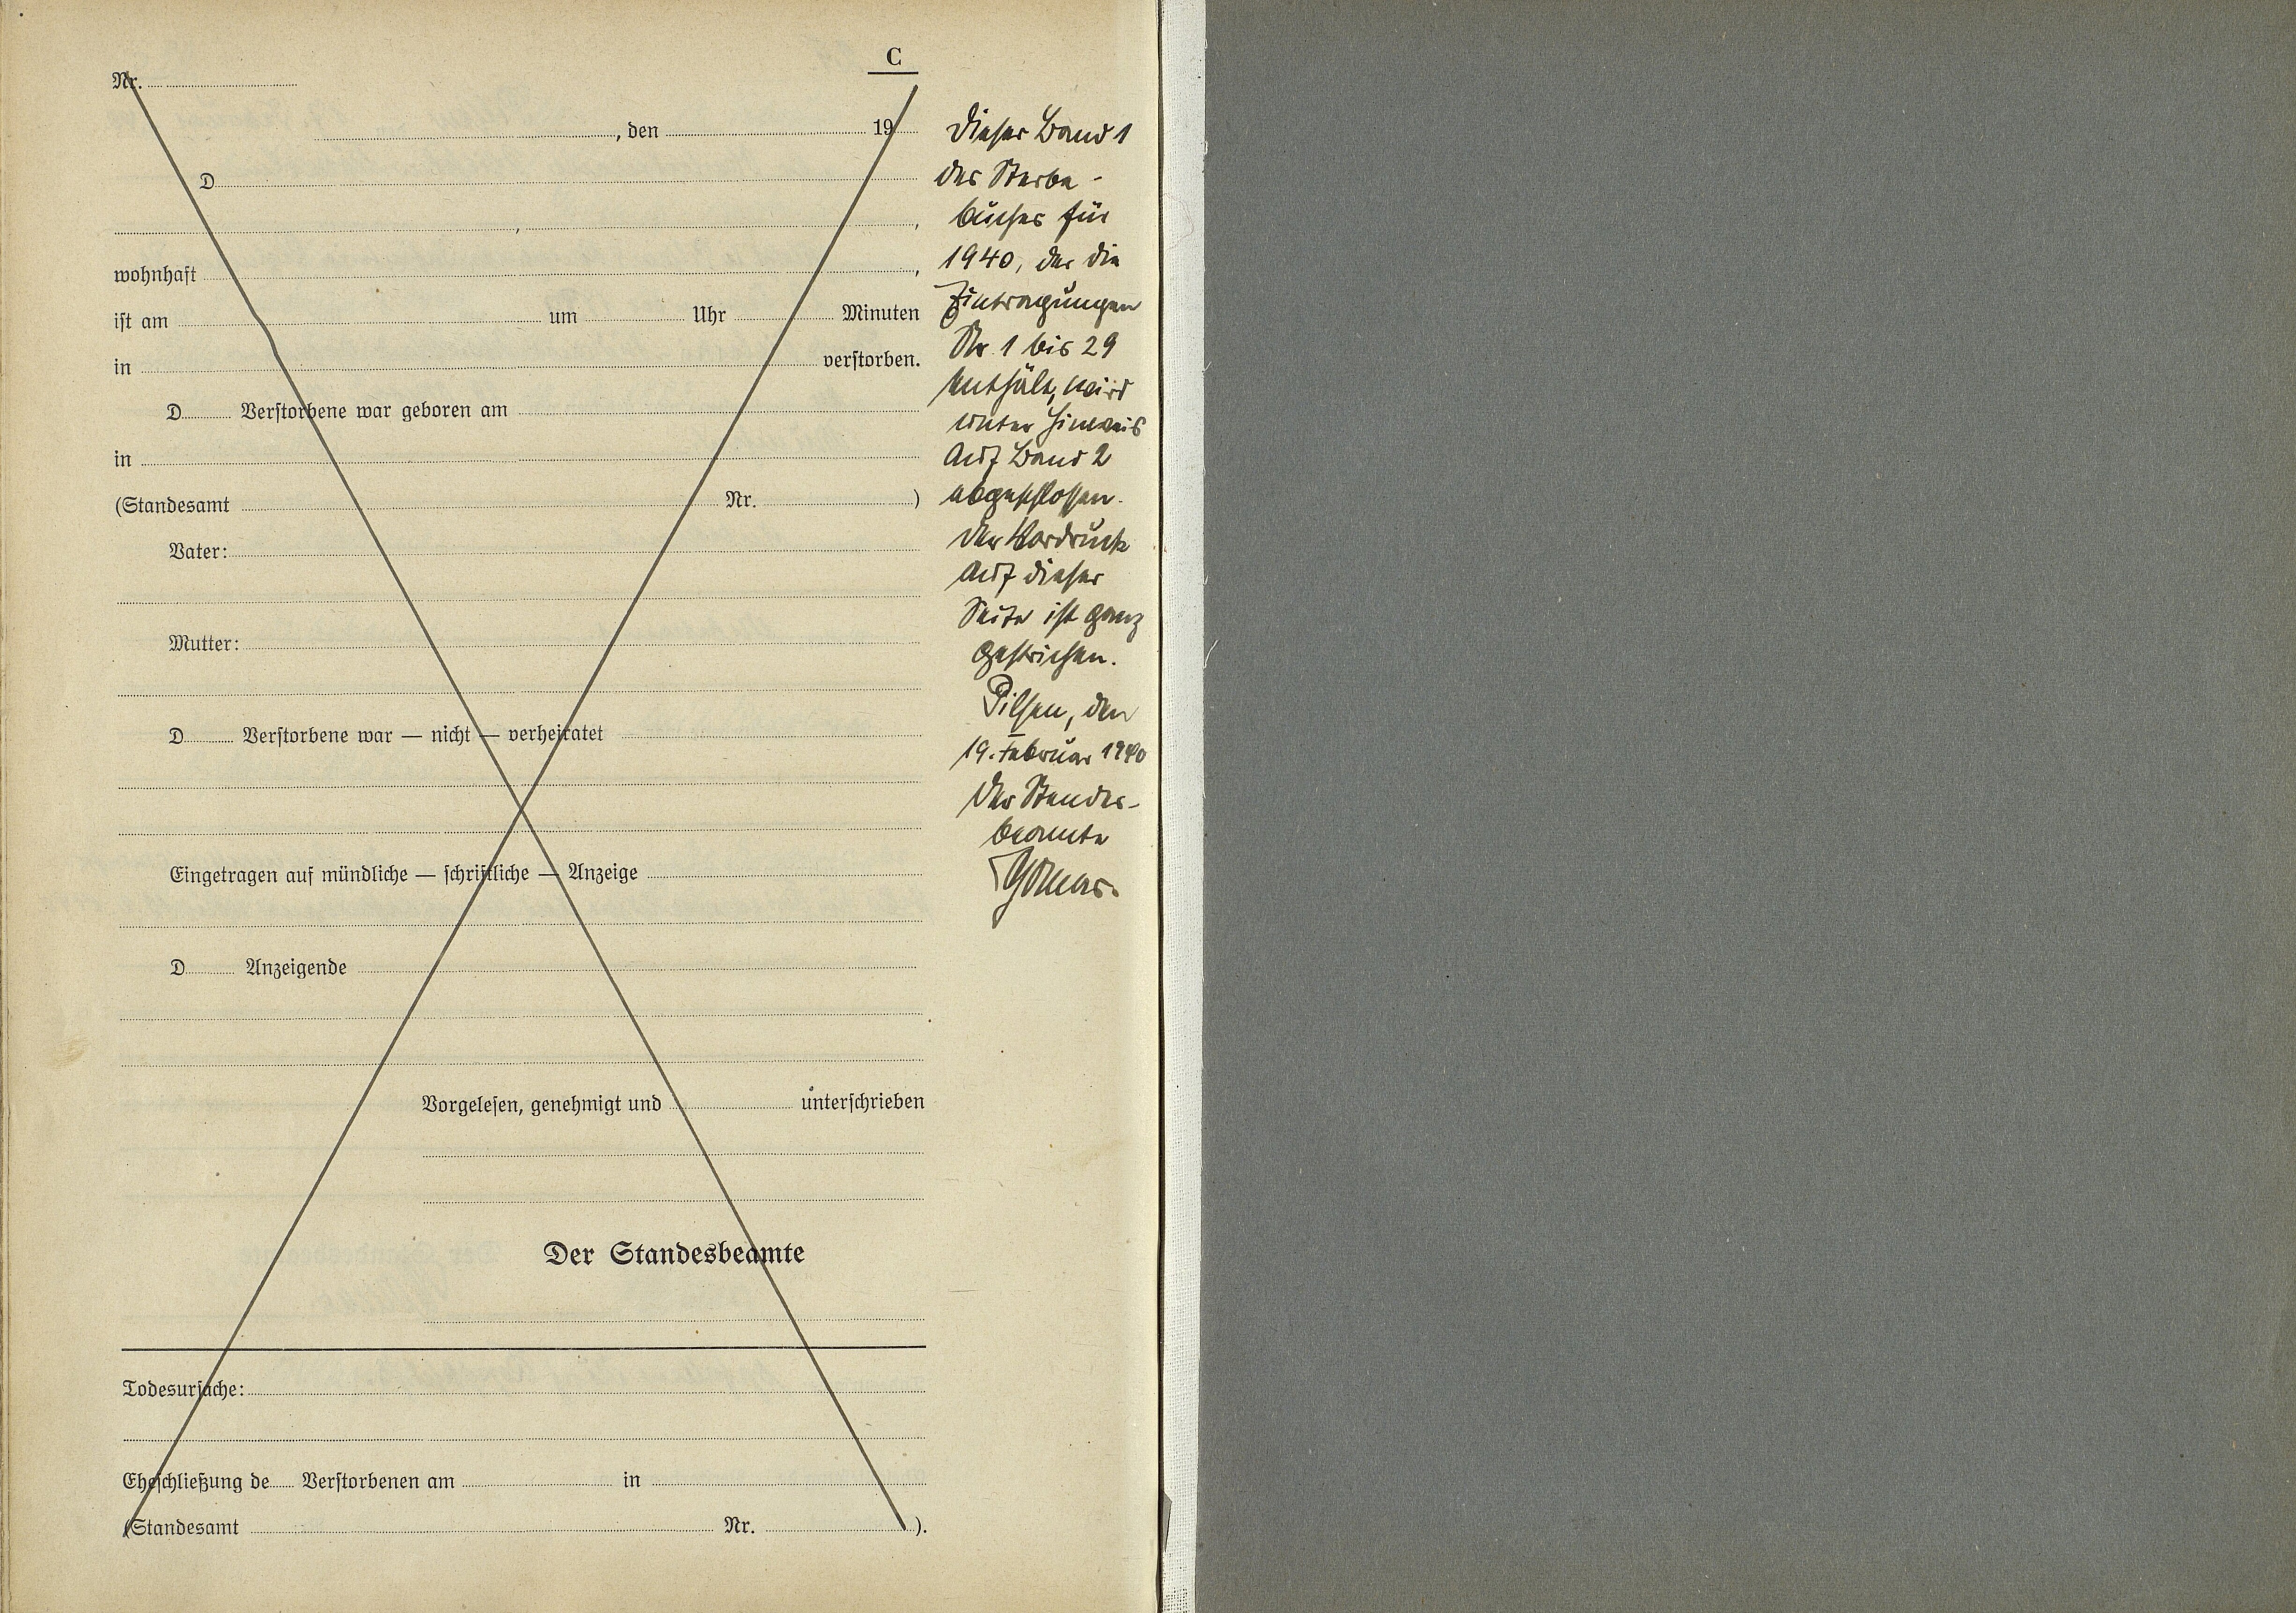 C
Nr.
, den 19
D
,
wohnhaft ,
ist am um Uhr Minuten
in verstorben.
D Verstorbene war geboren am
in
(Standesamt Nr. )
Vater:
Mutter:
D Verstorbene war — nicht — verheiratet
Eingetragen auf mündliche — schriftliche — Anzeige
D Anzeigende
Vorgelesen, genehmigt und unterschrieben
Der Standesbeamte
Todesursache:
Eheschließung de Verstorbenen am in
(Standesamt Nr. ).
Dieser Band 1
des Sterbe-
buches für
1940, der die
Eintragungen
Nr. 1 bis 29
enthält, wird
unter Hinweis
auf Band 2
abgeschlossen.
Der Vordruck
auf dieser
Seite ist ganz
gestrichen.
Pilsen, den
19. Februar 1940
Der Standes-
beamte